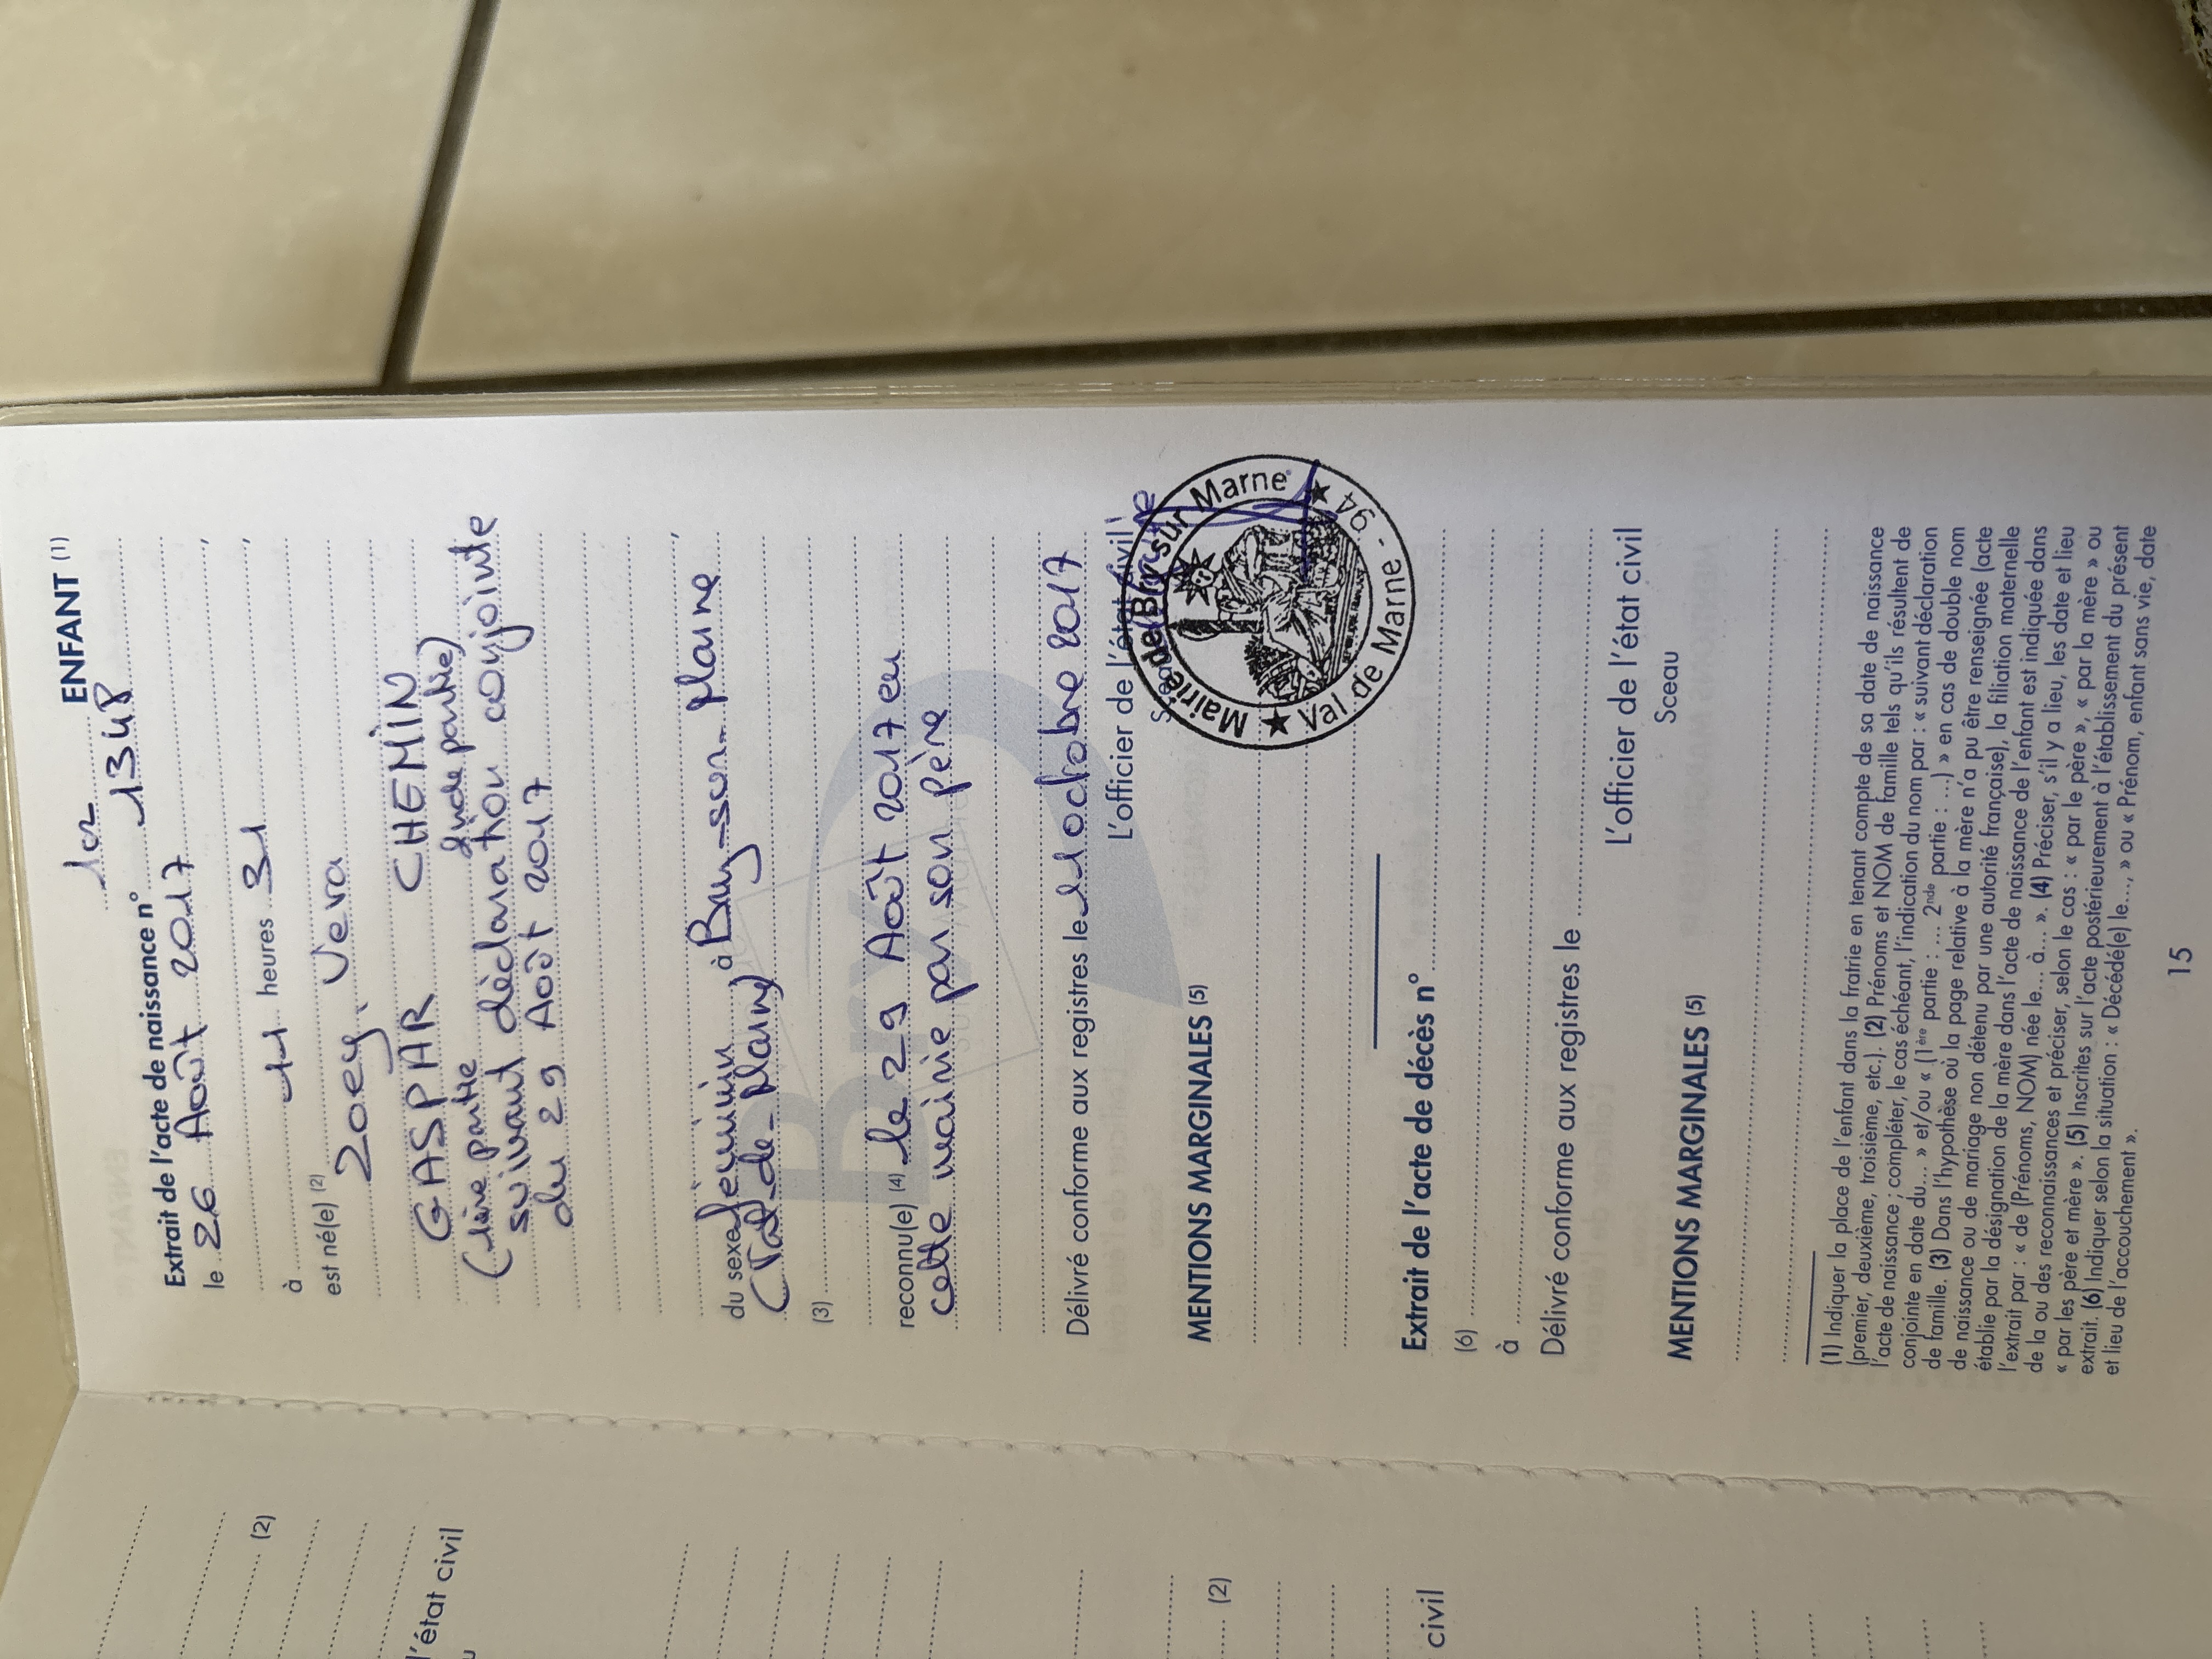 1er ENFANT (1)
Extrait de l'acte de naissance n° 1348
le 26 Août 2017,
à 11 heures 31,
est né(e) (2)
Zoey, Vera
GASPAR CHEMIN
(1ère partie 2nde partie)
suivant déclaration conjointe
du 29 Août 2017
du sexe féminin à Bry-sur-Marne,
(Val-de-Marne)
(3)
reconnu(e) (4) le 29 Août 2017 en
cette mairie par son père
Délivré conforme aux registres le 11 octobre 2017
L'officier de l'état civil
Sceau
Mairie de Bry sur Marne
Val de Marne - 94
Bry
MENTIONS MARGINALES (5)
Extrait de l'acte de décès n°
(6)
à
Délivré conforme aux registres le
L'officier de l'état civil
Sceau
MENTIONS MARGINALES (5)
(1) Indiquer la place de l'enfant dans la fratrie en tenant compte de sa date de naissance
(premier, deuxième, troisième, etc.). (2) Prénoms et NOM de famille tels qu'ils résultent de
l'acte de naissance ; compléter, le cas échéant, l'indication du nom par : « suivant déclaration
conjointe en date du... » et/ou « (1ère partie : ... 2nde partie : ...) » en cas de double nom
de famille. (3) Dans l'hypothèse où la page relative à la mère n'a pu être renseignée (acte
de naissance ou de mariage non détenu par une autorité française), la filiation maternelle
établie par la désignation de la mère dans l'acte de naissance de l'enfant est indiquée dans
l'extrait par : « de (Prénoms, NOM) née le... à... ». (4) Préciser, s'il y a lieu, les date et lieu
de la ou des reconnaissances et préciser, selon le cas : « par le père », « par la mère » ou
« par les père et mère ». (5) Inscrites sur l'acte postérieurement à l'établissement du présent
extrait. (6) Indiquer selon la situation : « Décédé(e) le..., » ou « Prénom, enfant sans vie, date
et lieu de l'accouchement ».
15
(2)
l'état civil
(2)
civil